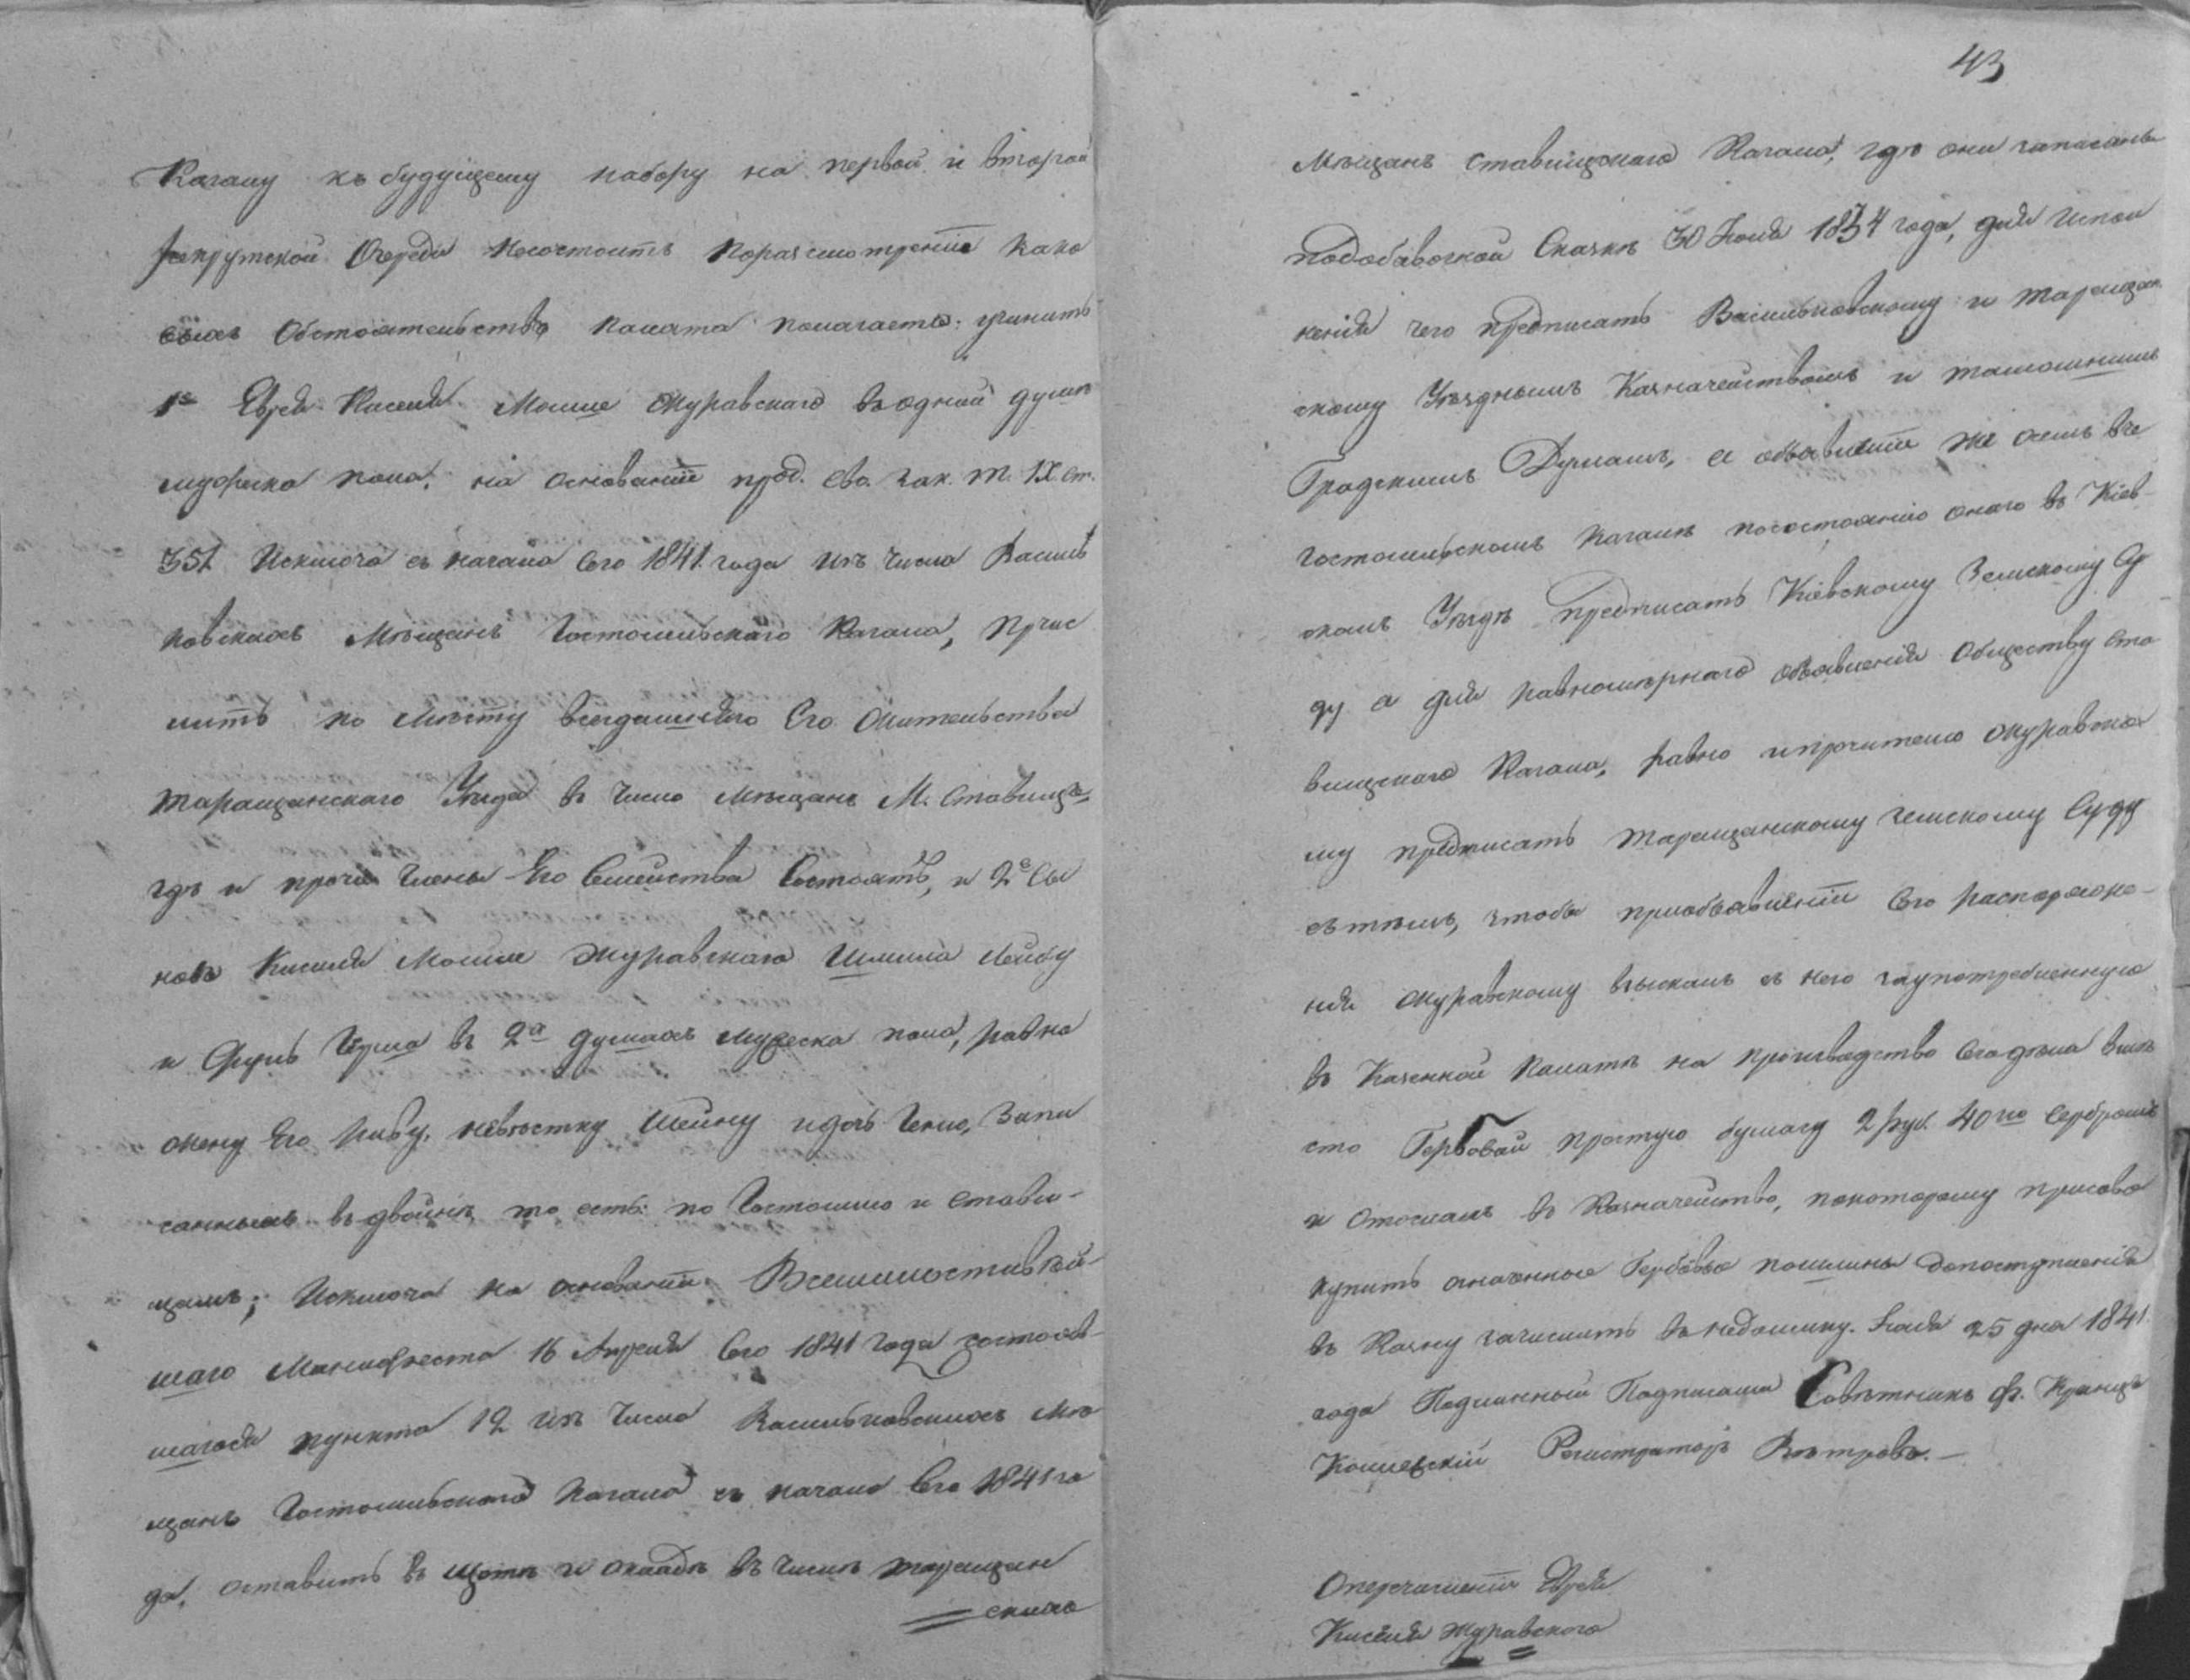 Кагалу къ будущему набору на первой и второй
рекрутской Очереди несостоитъ Поразсмотреніи како
выхъ Обстоятельствъ Палата полагаетъ: учинить
1е Еврея Киселя Мошке Журавскаго въ одной душѣ
мужеска пола, на основаніи прод. Сво. зак. Т. IX ст.
351 Исключа съ начала Сего 1841 года изъ числа Василь
ковскихъ Мѣщанъ Гостомльскаго Кагала, Причис
лить по мѣсту всегдашняго Его Жительства
Таращанскаго Уѣзда въ число мѣщанъ М. Ставищъ,
гдѣ и прочіе члены Его Семейства Состоятъ, и 2е Сы
новъ Киселя Мошки Журавскаго Шмила Лейбу
и въ 2х душахъ мужеска пола, равно
жену Его Риву, невѣстку Шейну и дочь Геню, Запи
санныхъ въ двойнѣ то есть: по Гостомлю и Стави-
щамъ; Исключа на основаніи Всемилостивѣй-
шаго Манифеста 16 Апрѣля Сего 1841 года состояв-
шагося пункта 12 изъ Числа Васильковскихъ Мѣ
щанъ Гостомльскаго Кагала съ начала Сего 1841 го
да, оставить въ щетѣ и окладѣ въ числѣ Таращан
скихъ
43
Мѣщанъ Ставищскаго Кагала, гдѣ они записаны
подобавочной Сказкѣ 30 Іюня 1834 года, для Испол
ненія чего предписать Васильковскому и Таращан
скому Уѣзднымъ Казначействамъ и тамошнимъ
Градскимъ Думамъ, а объявленіи же очемъ въ
Гостомльскомъ Кагалѣ посостоянію онаго въ Кіев-
скомъ Уѣздѣ Предписать Кіевскому Земскому Су
ду а для равномѣрнаго объявленія Обществу Ста
вищскаго Кагала, равно и просителю Журавско
му предписать Таращанскому Земскому Суду
съ тѣмъ, чтобы приобъявленіи Сего распоряже-
нія Журавскому взыскалъ съ него заупотребленную
въ Казенной Палатѣ на производство Сего дѣла вмѣ
сто Гербовой простую бумагу 2 руб. 40 ко Серебромъ
и Отослалъ въ Казначейство, покоторому присово
купить означенные Гербовые пошлины допоступленія
въ Казну зачислить въ недоимку. Іюля 25 дня 1841
года Подлинный Подписали Совѣтникъ Ф.
Регистраторъ Вѣтровъ.—
Оперечисленіи Еврея
Киселя Журавскаго